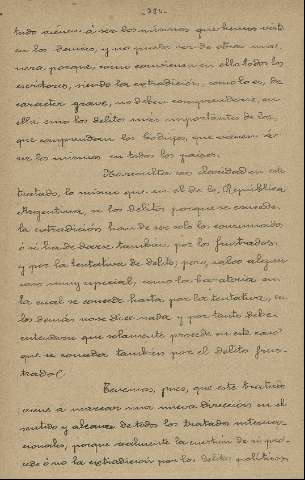 todo vienen á ser los mismos que hemos visto
en los demas, y no puede ser de otra ma-
nera porque, como convienen en ello todos los
escritores, siendo la extradición, como lo es, de
caracter grave, no deben comprenderse en
ella sino los delitos mas importantes de los
que comprendan los Codigos, que vienen á
ser los mismos en todos los paises.
No resulta con claridad en este
tratado, lo mismo que en el de la República
Argentina, si los delitos porque se concede
la extradición han de ser solo los consumados
ó si ha de darse tambien por los frustrados
y por la tentativa de delito, pero, salvo algun
caso muy especial, como la baratería en
la cual se concede hasta por la tentativa, en
los demás no se dice nada y por tanto debe
entenderse que solamente procede en este caso
que se conceda tambien por el delito frus-
trado.
Tenemos, pues, que este tratado
viene á marcar una nueva direccion en el
sentido y alcance de todos los tratados interna-
cionales, porque realmente la cuestión de si pro-
cede ó no la extradición por los delitos políticos